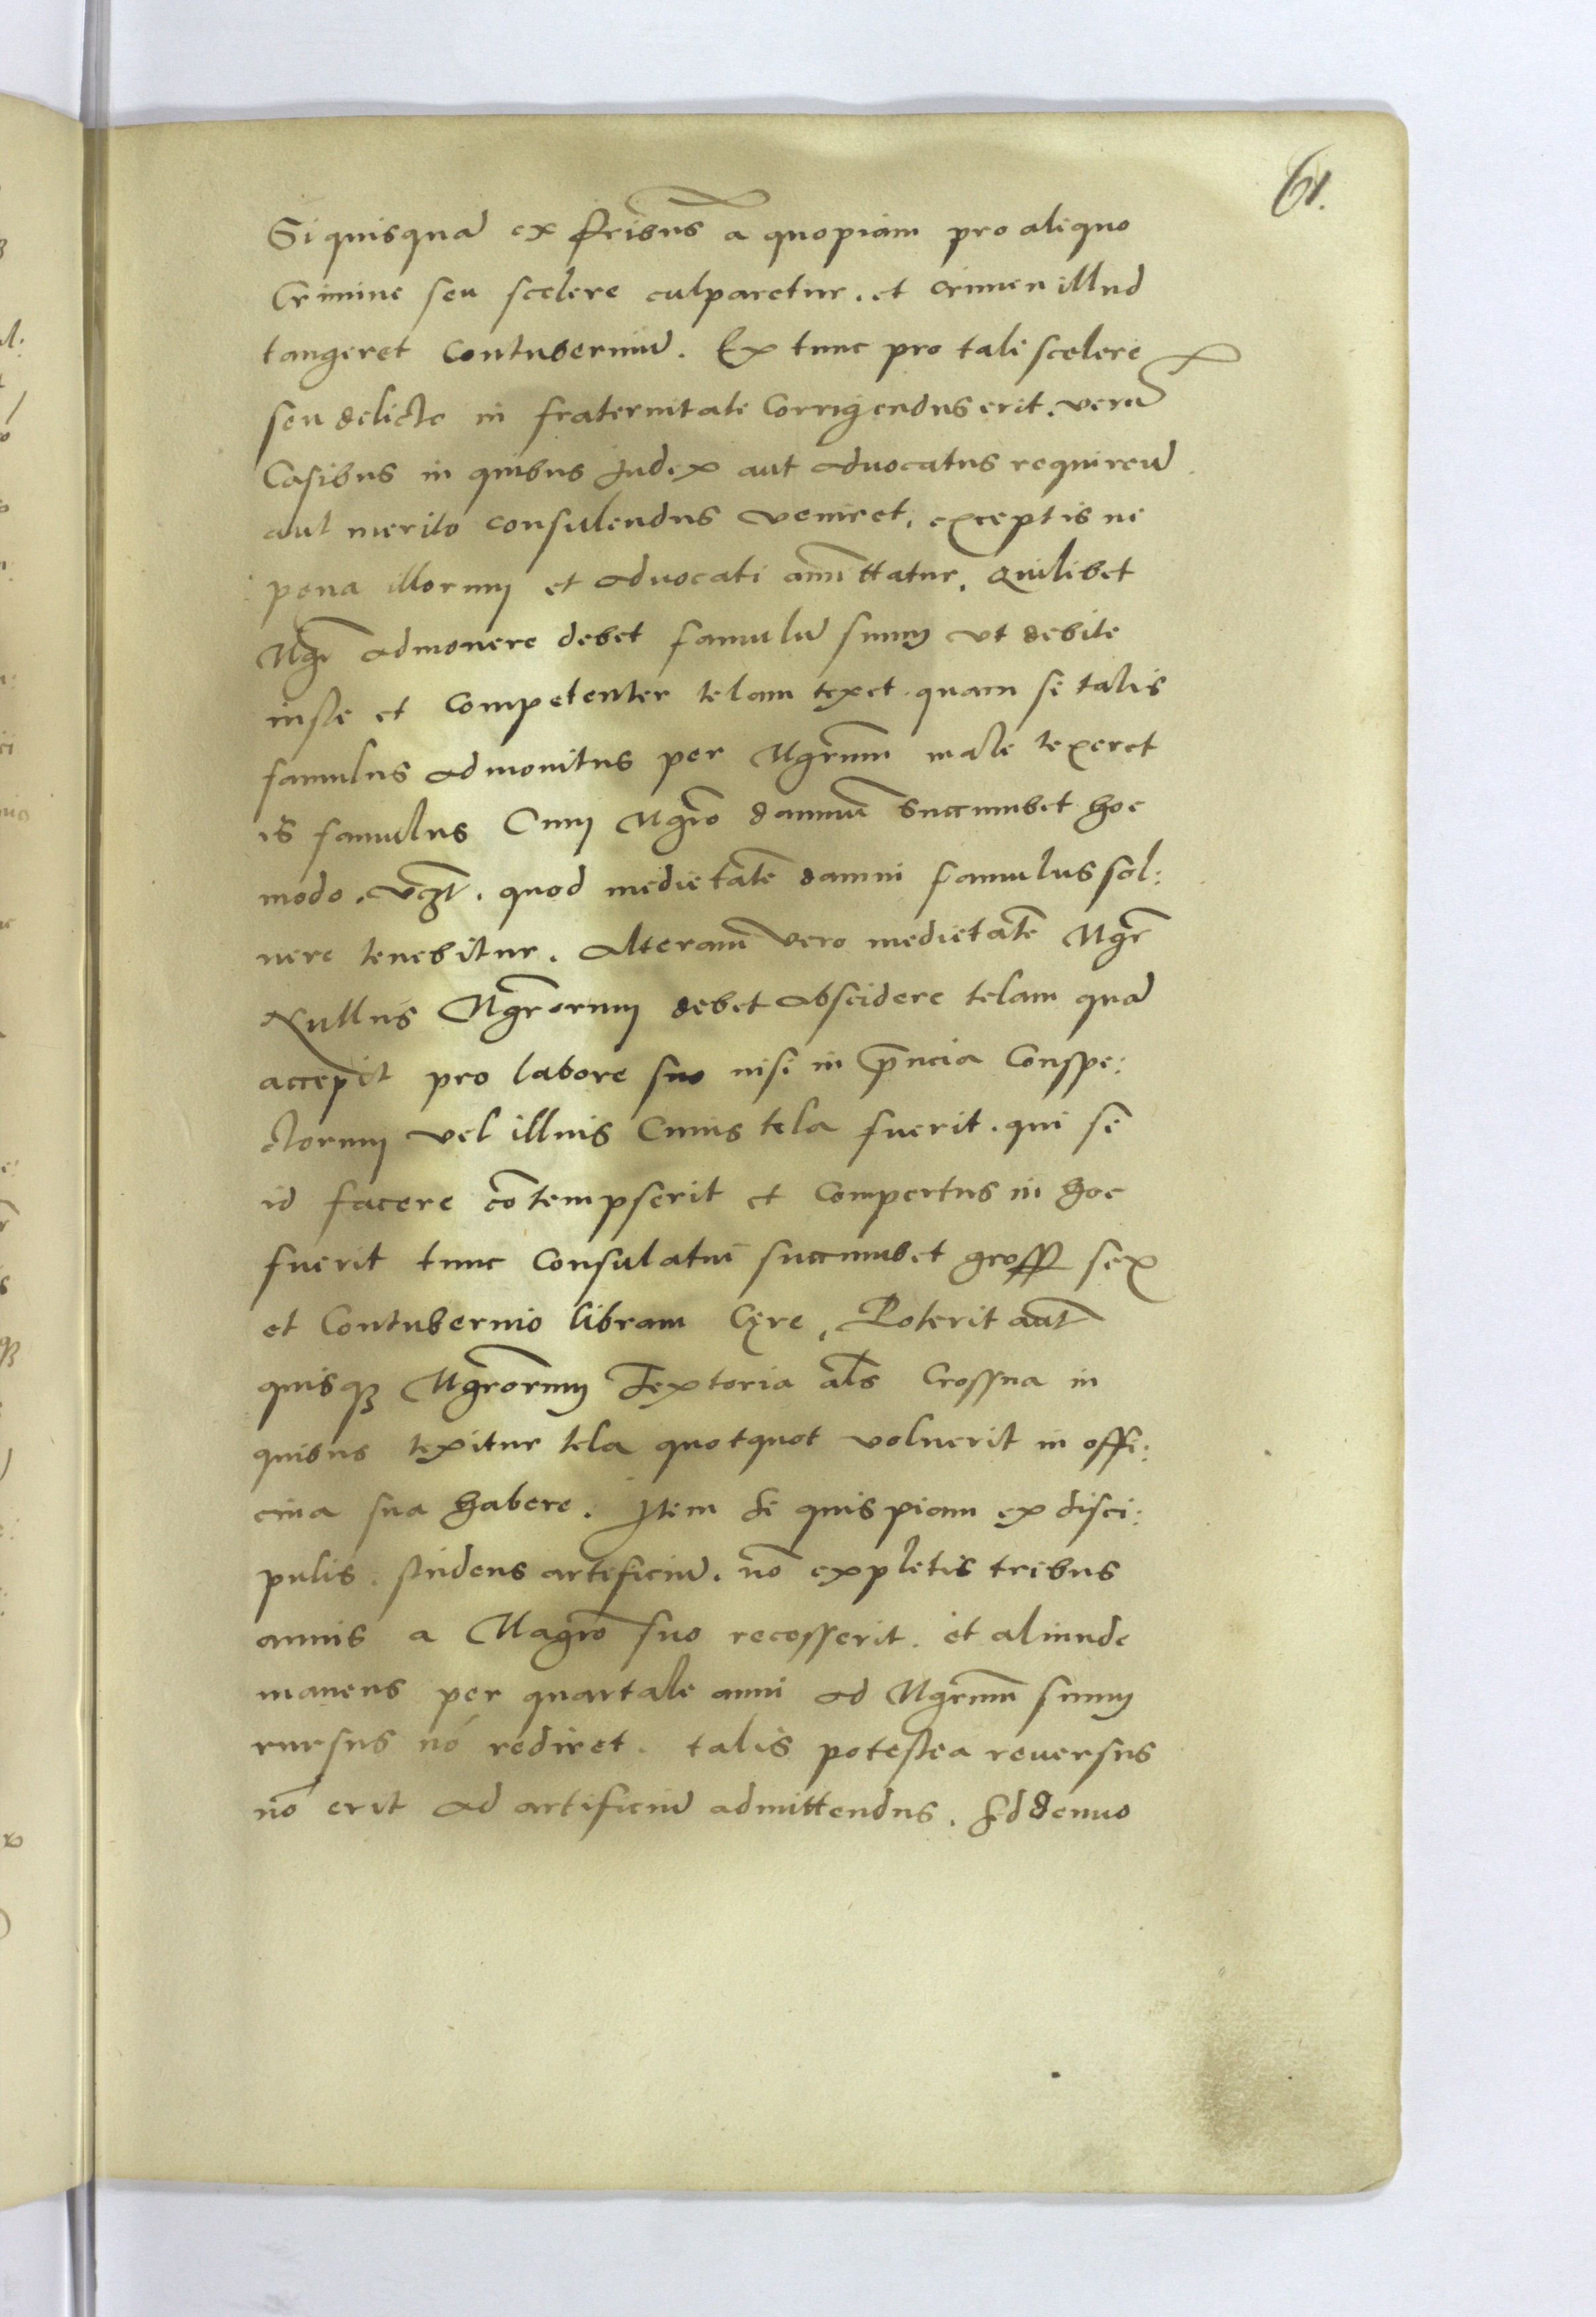 61.
Si quisquā ex fribus a quopiam pro aliquo
Crimine seu scelere culparetur. et crimen illud
tangeret contuberniū. Ex tunc pro tali scelere
seu delicto in fraternitate Corrigendus erit. verū
Casibus in quibus Judex aut advocatus requireū
aut merito consulendus veniret. exceptis ne
pena illorum et advocati amittatur. Quilibet
Mgr̄ admonere debet famulū suum vt debite
iuste et Competenter telam texet. quam si talis
famulus admonitus per Mgrum̄ male texeret
is famulus Cum Mgrō damnū succumbet hoc
modo. vꝫt. quod medietatē damni famulus sol:
uere tenebitur. Alteram̄ vero medietatē Mgr̄
Nullus Mgrōrum debet Abscidere telam quā
accepit pro labore suo nisi in p̄ncia Conspe:
ctorum vel illius Cuius tela fuerit. qui si
id facere cōtempserit et compertus in hoc
fuerit tunc Consulatui succumbet gross sex
et Contubernio libram Cęre, Poterit aut̄
quisqꝫ Mgrōrum Textoria al̄s Crossna in
quibus texitur tela quotquot voluerit in offi:
cina sua habere. Item si quispiam ex disci:
pulis. studens artificiū. nō expletis tribus
annis a Magrō suo recesserit. et aliunde
manens per quartale anni ad Mgrum̄ suum
rursus nō rediret. talis potestea reuersus
nō erit ad artificiū admittendus. Sed denuo